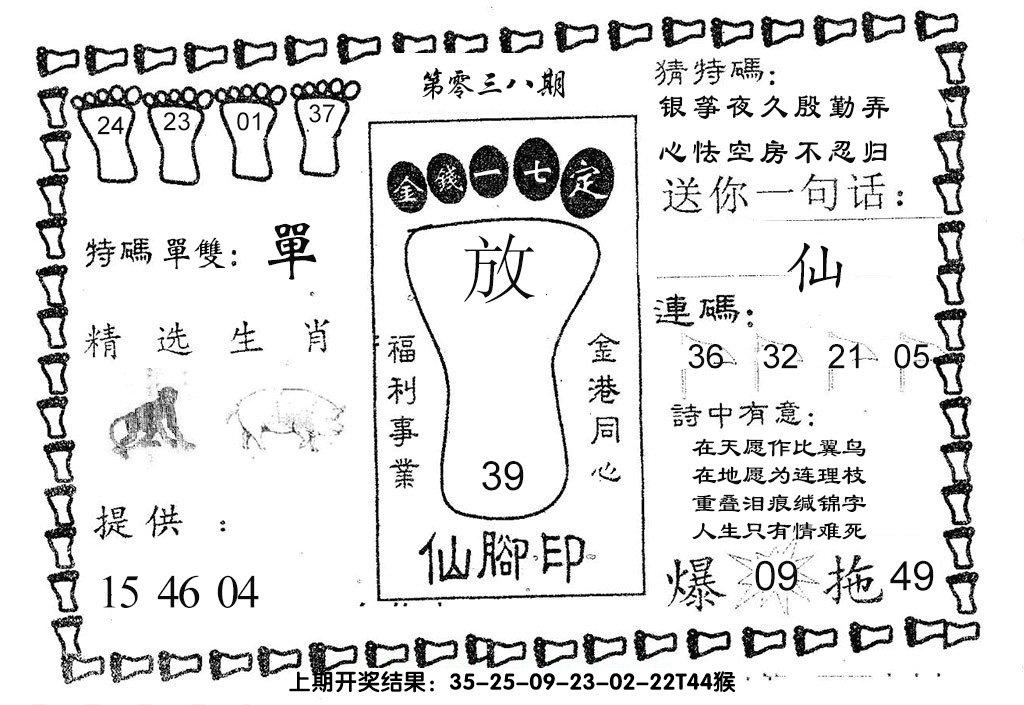 第零三八期
24 23 01 37
特碼單雙：單
精选生肖
提供：
15 46 04
金錢一七定
放
福利事業
金港同心
39
仙腳印
猜特碼：
银筝夜久殷勤弄
心怯空房不忍归
送你一句话：
仙
連碼：
36 32 21 05
詩中有意：
在天愿作比翼鸟
在地愿为连理枝
重叠泪痕缄锦字
人生只有情难死
爆 09 拖 49
上期开奖结果：35-25-09-23-02-22T44猴